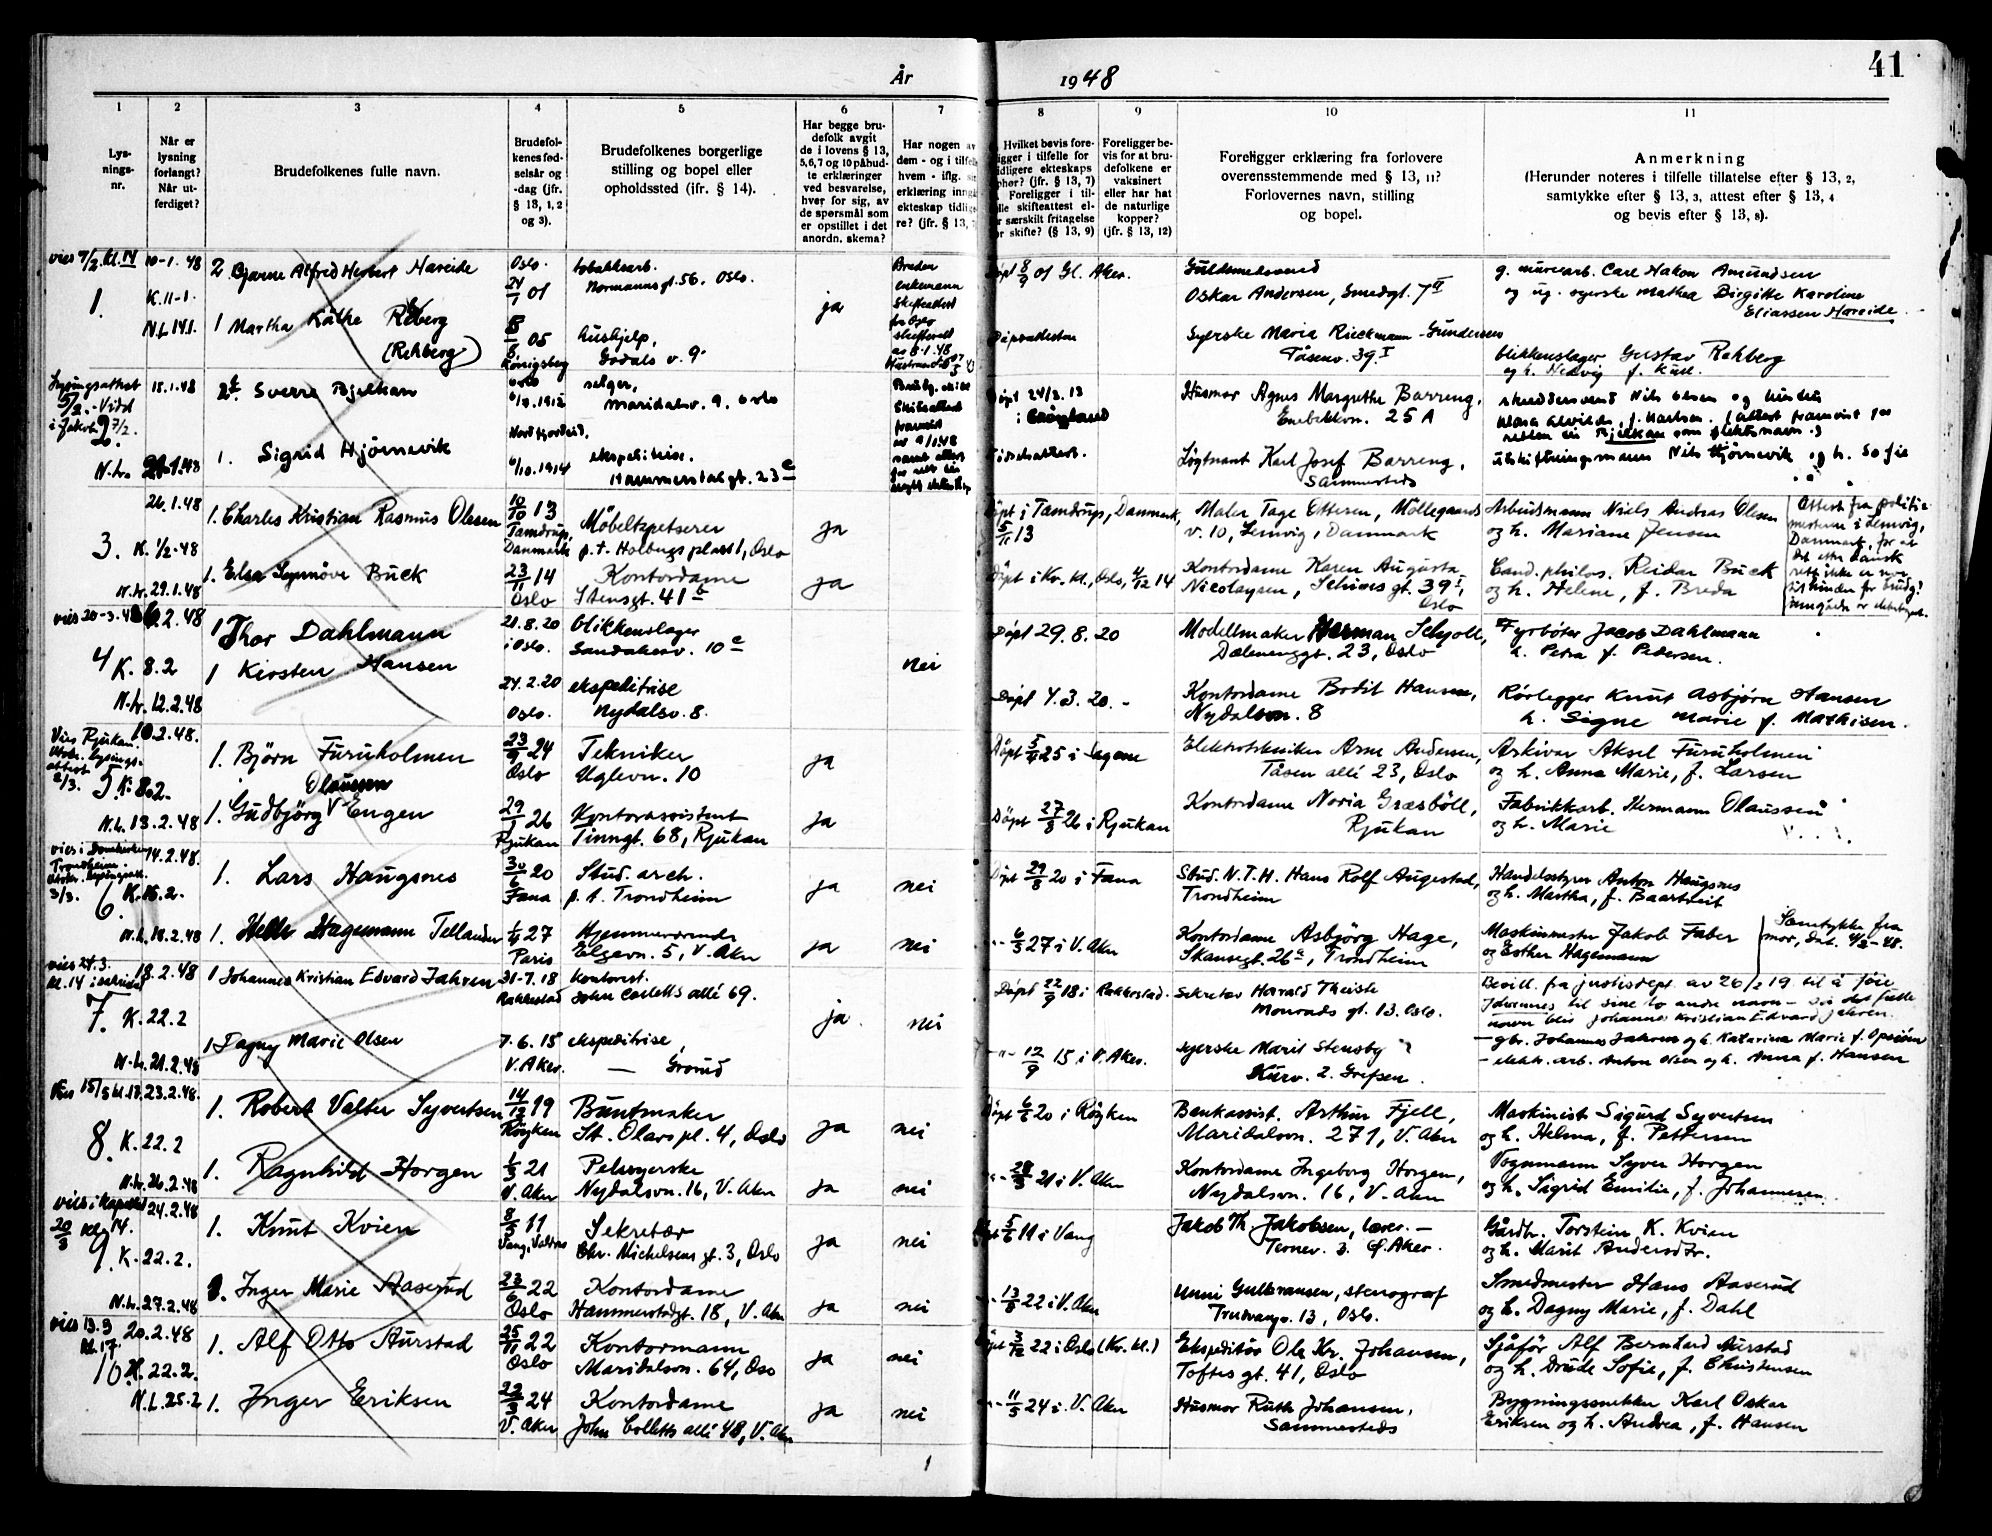 41
År 1948
1 2 3 4 5 6 7 8 9 10 11
Lys-
nings-
nr.
Når er
lysning
forlangt?
Når ut-
ferdiget?
Brudefolkenes fulle navn.
Brudefol-
kenes fød-
selsår og
-dag (jfr.
§ 13, 1, 2
og 3).
Brudefolkenes borgerlige
stilling og bopel eller
opholdssted (ifr. § 14).
Har begge bru-
defolk avgit
de i lovens § 13,
5, 6, 7 og 10 påbud-
te erklæringer
ved besvarelse,
hver for sig, av
de spørsmål som
er opstillet i det
anordn. skema?
Har nogen av
dem - og i tilfelle
hvem - iflg.
erklæring inngå
ekteskap tidlig
re? (jfr. § 13,
Hvilket bevis fore-
ligger i tilfelle for
tidligere ekteskaps
ophør? (jfr. § 13, 7)
Foreligger i til-
lle skifteattest el-
r særskilt fritagelse
r skifte? (§ 13, 9)
Foreligger be-
vis for at bru-
defolkene er
vaksinert
eller har hat
de naturlige
kopper?
(jfr. § 13, 12)
Foreligger erklæring fra forlovere
overensstemmende med § 13, 11?
Forlovernes navn, stilling
og bopel.
Anmerkning
(Herunder noteres i tilfelle tillatelse efter § 13, 2,
samtykke efter § 13, 3, attest efter § 13, 4
og bevis efter § 13, 8).
vies 7/2 kl. 14
1.
10-1. 48
K. 11-1.
N.L. 14.1.
2 Bjarne Alfred Herbert Hareide
Oslo.
24/7 01
tobakksarb.
Normannsgt. 56. Oslo.
ja
Bruden
enkemann
Skifteattest
fra Oslo
skifterett
av 8.1.48
Døpt 8/9 01 Gl. Aker.
Guldsmedsvend
Oskar Andersen, Smedgt. 7 II
g. murerarb. Carl Hakon Amundsen
og ug. syerske Mathea Birgitte Karoline
Eliassen Hareide.
1 Martha Käthe Reberg
(Rehberg)
05
Königsberg
hushjelp,
Godals v. 9.
Dåpsattest
Syerske Maria Rieckmann-Gundersen
Tåsenv. 39 I
blikkenslager Gustav Rehberg
og h. Hedvig f.
Lysingsattest
5/2. - Vidd
i Jakob 7/2.
2.
18.1.48
N.L. 21.1.48
2. Sverre Bjelkan
Oslo
1912
selger,
Maridalsv. 9. Oslo
Døpt 24/3. 13
i Grønland
Husmor Agnes Margrethe Barreng,
Enebakkvn. 25 A
skreddersvend Nils Olsen og hustru
1. Sigrid Hjørnevik
Nordfjordeid.
6/10.1914
ekspeditrise.
Hammerstadgt. 23 c
Løytnant Karl Josef Barreng,
Sammesteds
utskiftningsmann Nils Hjørnevik og h. Sofie
3.
26.1.48
K. 1/2-48
N.L. 29.1.48
1. Charles Kristian Rasmus Olesen
10/10 13
Tamdrup,
Danmark
Møbeltapetserer
p.t. Holbergs plass 1, Oslo
ja
Døpt i Tamdrup, Danmark,
5/11 13
Maler Tage Ottesen, Møllegaards
v. 10, Lemvig, Danmark
Arbeidsmann Niels Andreas Olesen
og h. Mariane Jensen
Attest fra politi-
mesteren i Lemvig,
Danmark, for at
det etter dansk
rett ikke er noe
til hinder for brudg.
inngåelse av ekteskapet.
1. Elsa Synnøve Buck
23/11 14
Oslo
Kontordame
Stensgt. 41 b
ja
Døpt i Kr. kl., Oslo, 4/12 14
Kontordame Karen Augusta
Nicolaysen, Schives gt. 39 I,
Oslo
Cand. philos. Reidar Buck
og h. Helene, f. Breda
vies 20-3. 48
4
6.2.48
K. 8.2
N.L. 12.2.48
1 Thor Dahlmann
21.8.20
i Oslo.
blikkenslager
Sandakerv. 10 c
nei
Døpt 29.8.20
Modellmaker Herman Schjoll,
Dælenenggt. 23, Oslo
Fyrbøter Jacob Dahlmann
h. Petra f. Pedersen.
1 Kirsten Hansen
24.2.20
Oslo.
ekspeditrise
Nydalsv. 8.
Døpt 4.3.20. -
Kontordame Bodil Hansen,
Nydalsvn. 8
Rørlegger Knut Asbjørn Hansen
h. Signe Marie f. Mathisen.
Vies Rjukan.
Utstr. lysings-
attest
2/3.
5.
10.2.48.
K. 8.2.
N.L. 13.2.48
1. Bjørn Furuholmen
23/9 24
Oslo
Tekniker
Uglevn. 10
ja
Døpt 5/4 25 i Sagene
Elektrotekniker Arne Andersen,
Tåsen allé 23, Oslo
Arkivar Aksel Furuholmen
og h. Anna Marie, f. Larsen
Olaussen
1. Gudbjørg V Engen
29/1 26
Rjukan
Kontorassistent
Tinngt. 68, Rjukan
ja
Døpt 27/8 26 i Rjukan
Kontordame Noria Græsbøll,
Rjukan
Fabrikkarb. Hermann Olaussen
og h. Marie
vies i Domkirken
Trondheim.
Utstr. lysingsatt.
3/3.
6.
14.2.48.
K. 15.2.
N.L. 18.2.48
1. Lars Haugsnes
30/6 20
Fana
Stud. arch.
p.t. Trondheim
ja
nei
Døpt 29/8 20 i Fana
Stud. N.T.H. Hans Rolf Augestad,
Trondheim
Handelsstyrer Anton Haugsnes
og h. Martha, f. Baartveit
1. Helle Hagemann Tellander
1/4 27
Paris
Hjemmeværende
Elgavn. 5, V. Aker
ja
nei
-"- 6/3 27 i V. Aker
Kontordame Asbjørg Hage,
Skansegt. 26 c, Trondheim
Maskinmester Jakob Faber
og Esther Hagemann
Samtykke fra
mor, dat. 4/2-48.
vies 27.3.
kl. 14 i
7.
18.2.48
K. 22.2
N.L. 21.2.48
1 Johannes Kristian Edvard Jahren
31-7.18
Rakkestad
kontorist.
John Colletts allé 69.
ja
nei
Døpt 22/9 18 i Rakkestad.
Sekretær Harald Theiste
Monrads gt. 13. Oslo.
Bevill. fra justisdept. av 26/2 19 til å føie
Johannes til sine to andre navn - så det fulle
navn blir Johannes Kristian Edvard Jahren.
- gbr. Johannes Jahren og h. Katarina Marie f. Opsión
1 Dagny Marie Olsen
7.6.15
V. Aker.
ekspeditrise,
Grorud
-"- 12/9 15 i V. Aker.
syerske Marit Stensby
Kurv. 2. Grefsen.
- elektr. arb. Anton Olsen og h. Anna f. Hansen
Vies 15/5 kl. 13.
8.
23.2.48.
K. 22.2
N.L. 26.2.48
1. Robert Valter Syvertsen
14/12 19
Røyken
Buntmaker
St. Olavs pl. 4, Oslo
ja
nei
Døpt 6/6 20 i Røyken
Bankassist. Arthur Fjell,
Maridalsvn. 271, V. Aker
Maskinist Sigurd Syvertsen
og h. Helma, f. Pettersen
1. Ragnhild Horgen
1/3 21
V. Aker
Pelssyerske
Nydalsvn. 16, V. Aker
ja
nei
21 i V. Aker
Kontordame Ingeborg Horgen,
Nydalsvn. 16, V. Aker
Vognmann Syver Horgen
og h. Sigrid Emilie, f. Johannesen.
vies i Kapellet
20/3 kl. 14.
9
24.2.48
K. 22.2.
N.L. 27.2.48
1. Knut Kvien
8/5 11
Vang, Valdres
Sekretær
Chr. Michelsens gt. 3, Oslo
ja
nei
Døpt 5/6 11 i Vang
Jakob Th. Jakobsen, lærer. -
Ternev. 3. Ø. Aker.
Gårdbr. Torstein K. Kvien
og h. Marit Andersdtr.
1. Inger Marie Aaserud
23/6 22
Oslo
Kontordame
Hammerstadgt. 18, V. Aker
ja
nei
-"- 13/8 22 i V. Aker
Unni Gulbransen, stenograf
13, Oslo.
Smedmester Hans Aaserud
og h. Dagny Marie, f. Dahl
vies 13.3
kl. 17.
10
20.2.48
K. 22.2.
N.L. 25.2
1. Alf Otto Aurstad
25/11 22
Oslo
Kontormann
Maridalsvn. 64, Oslo
ja
nei
Døpt 3/12 22 i Oslo (Kr. kl.)
Ekspeditør Ole Kr. Johansen,
Toftes gt. 41, Oslo
Sjåfør Alf Bernhard Aurstad
og h. Drude Sofie, f. Christensen
1. Inger Eriksen
22/3 24
V. Aker
Kontordame
John Colletts allé 48, V. Aker
ja
nei
-"- 11/5 24 i V. Aker
Husmor Ruth Johansen,
Sammesteds
Bygningssnekker Karl Oskar
Eriksen og h. Andrea, f. Hansen